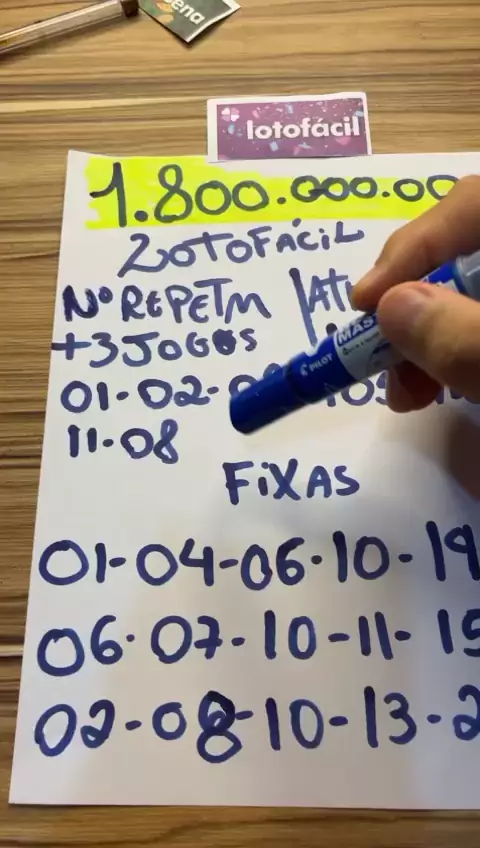 ena
lotofácil
1.800.000.00
LOTOFÁCIL
Nº REPETM
+3 JOGOS
01-02-
11-08
PILOT
FIXAS
01-04-06-10-19
06-07-10-11-15
02-08-10-13-2